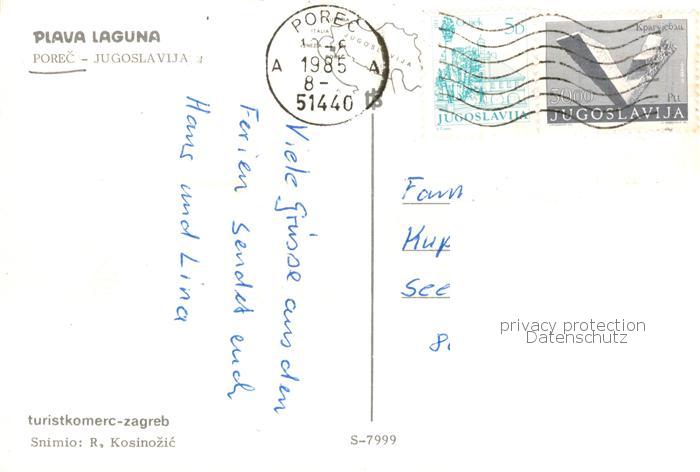 PLAVA LAGUNA
POREČ - JUGOSLAVIJA
POREČ
1985
A A
8-
51440
ITALIA
JUGOSLAVIJA
50
JUGOSLAVIJA
50.00
JUGOSLAVIJA
Viele Grüsse aus den
Ferien sendet euch
Hans und Lina
Fam
Kup
See
8
privacy protection
Datenschutz
turistkomerc-zagreb
Snimio: R. Kosinožić
S-7999